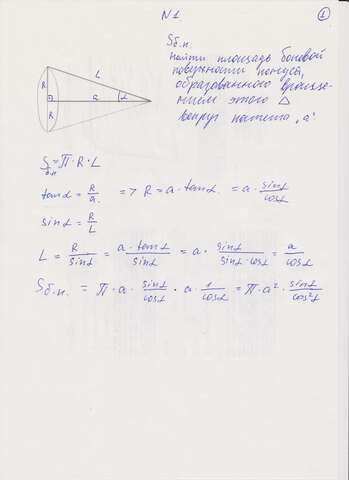 N1
1
Sб.п
найти площадь боковой
поверхности конуса,
образованного враще-
нием этого △
вокруг катета „a"
R L a α R
Sб.п = π·R·L
tanα = R/a => R = a·tanα = a·sinα/cosα
sinα = R/L
L = R/sinα = a·tanα/sinα = a·sinα/(sinα·cosα) = a/cosα
Sб.п. = π·a·sinα/cosα·a·1/cosα = π·a²·sinα/cos²α